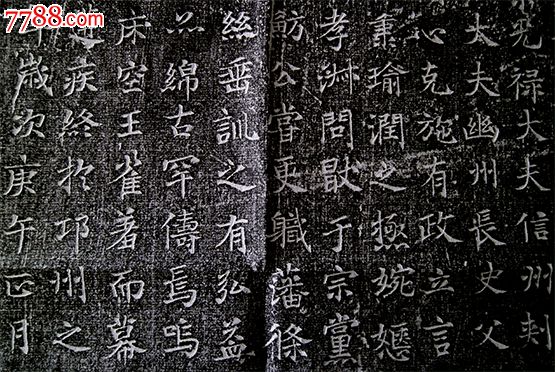 7788.com
光禄大夫信州刺
太夫幽州長史父
心克施有政立言
秉瑜潤之極婉
孝淋問猒于宗黨
訪公嘗更職藩條
絲垂訓之有弘益
綿古罕儔焉嗚
床空王雀著而幕
疾終於邛州之
歲次庚午正月